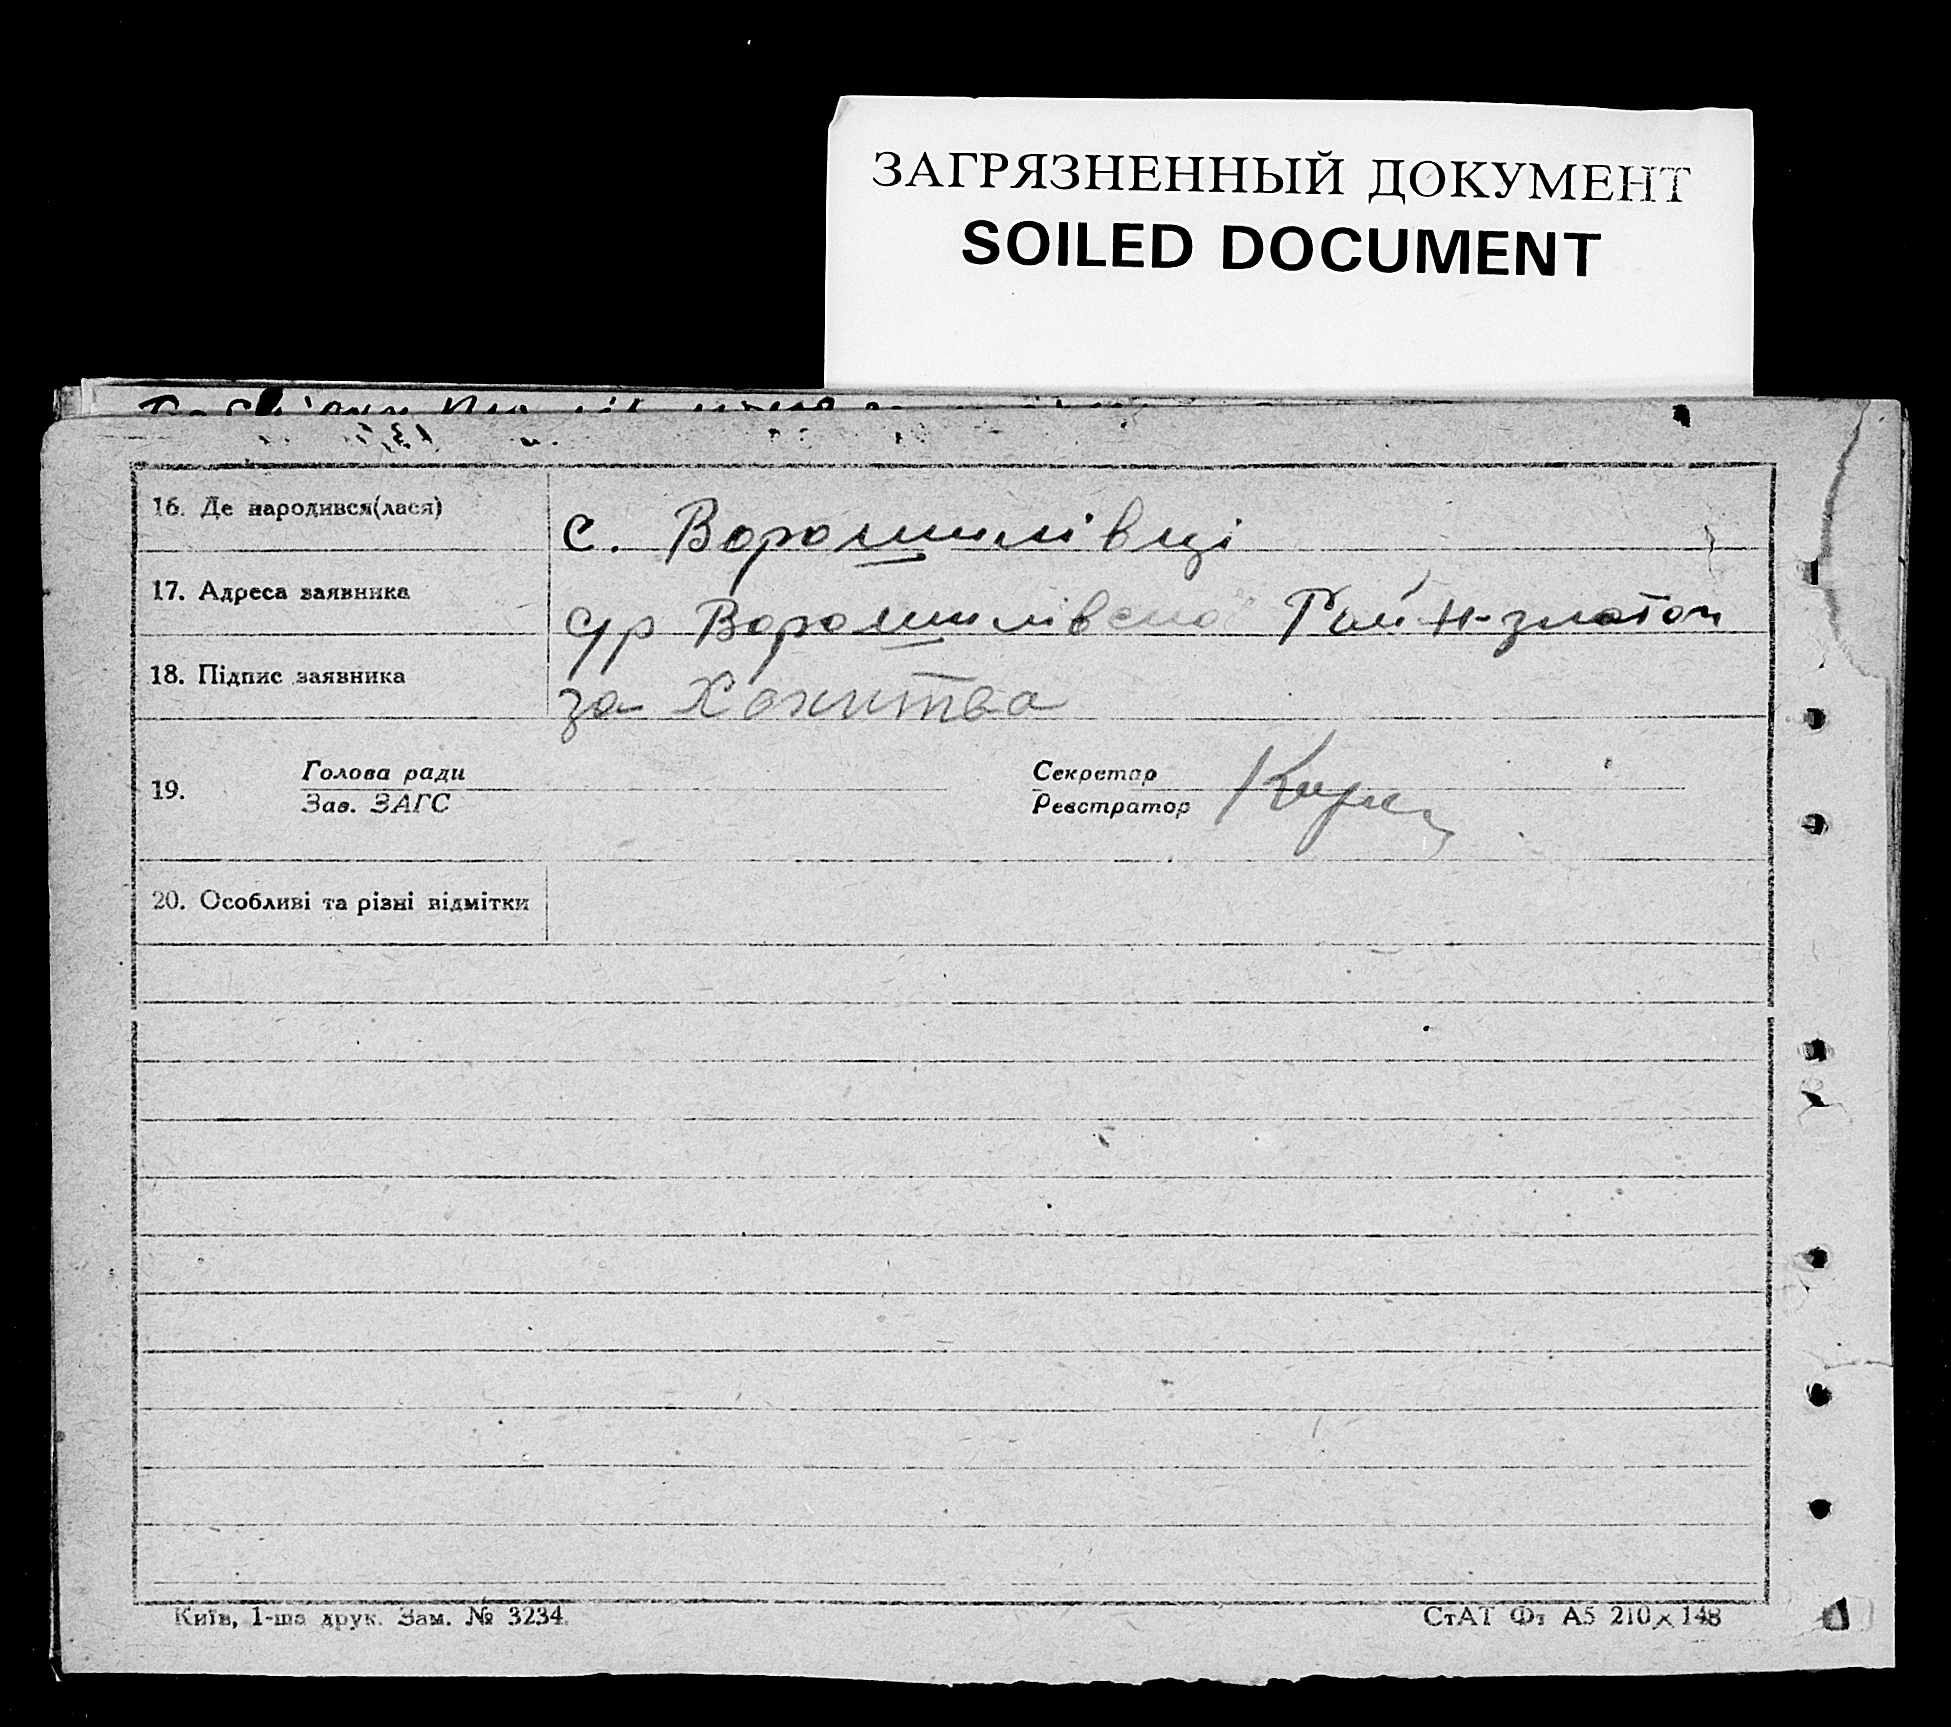 ЗАГРЯЗНЕННЫЙ ДОКУМЕНТ
SOILED DOCUMENT
16. Де народився(лася)
с. Ворошилівці
17. Адреса заявника
с/р Ворошилівсно
18. Підпис заявника
за
19.
Голова ради
Зав. ЗАГС
Секретар
Реєстратор
20. Особливі та різні відмітки
Київ, 1-ша друк. Зам. № 3234.
СтАТ Фт А5 210×148